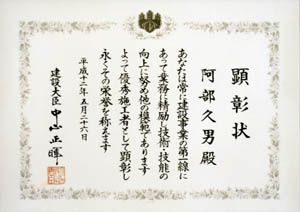 顕彰状
阿部久男殿
あなたは常に建設事業の第一線に
あって業務に精励し技術・技能の
向上に努め他の模範であります
よって優秀施工者として顕彰し
永くその栄誉を称えます
平成十二年五月二十六日
建設大臣 中山正暉